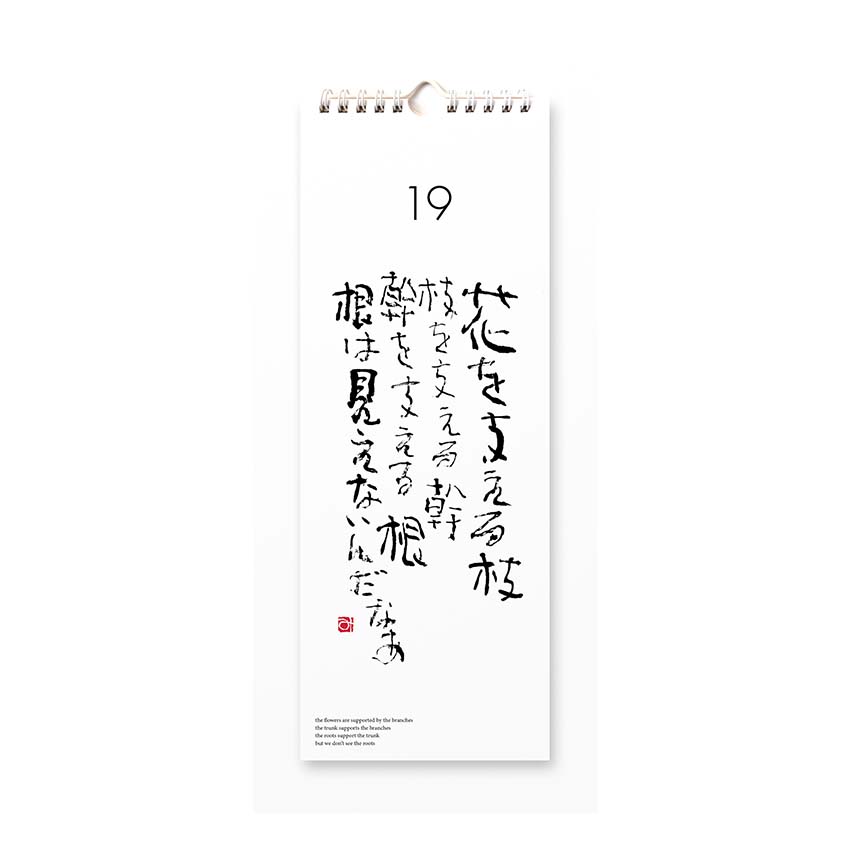 19
花を支える枝
枝を支える幹
幹を支える根
根は見えないんだなあ
the flowers are supported by the branches
the trunk supports the branches
the roots support the trunk
but we don't see the roots